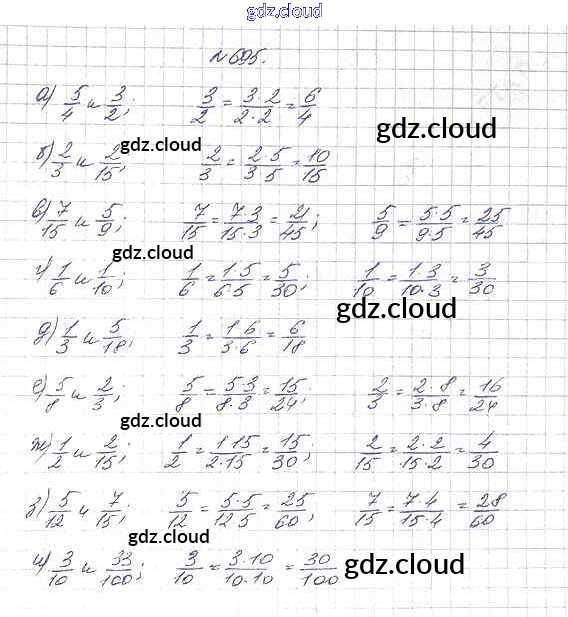 gdz.cloud
№695.
gdz.cloud
а) 5/4 и 3/2; 3/2 = 3·2/2·2 = 6/4
gdz.cloud
б) 2/3 и 2/15; 2/3 = 2·5/3·5 = 10/15
в) 7/15 и 5/9; 7/15 = 7·3/15·3 = 21/45; 5/9 = 5·5/9·5 = 25/45
gdz.cloud
г) 1/6 и 1/10; 1/6 = 1·5/6·5 = 5/30; 1/10 = 1·3/10·3 = 3/30
gdz.cloud
д) 1/3 и 5/18; 1/3 = 1·6/3·6 = 6/18
е) 5/8 и 2/3; 5/8 = 5·3/8·3 = 15/24; 2/3 = 2·8/3·8 = 16/24
gdz.cloud
ж) 1/2 и 2/15; 1/2 = 1·15/2·15 = 15/30; 2/15 = 2·2/15·2 = 4/30
gdz.cloud
з) 5/12 и 7/15; 5/12 = 5·5/12·5 = 25/60; 7/15 = 7·4/15·4 = 28/60
gdz.cloud
и) 3/10 и 33/100; 3/10 = 3·10/10·10 = 30/100
gdz.cloud